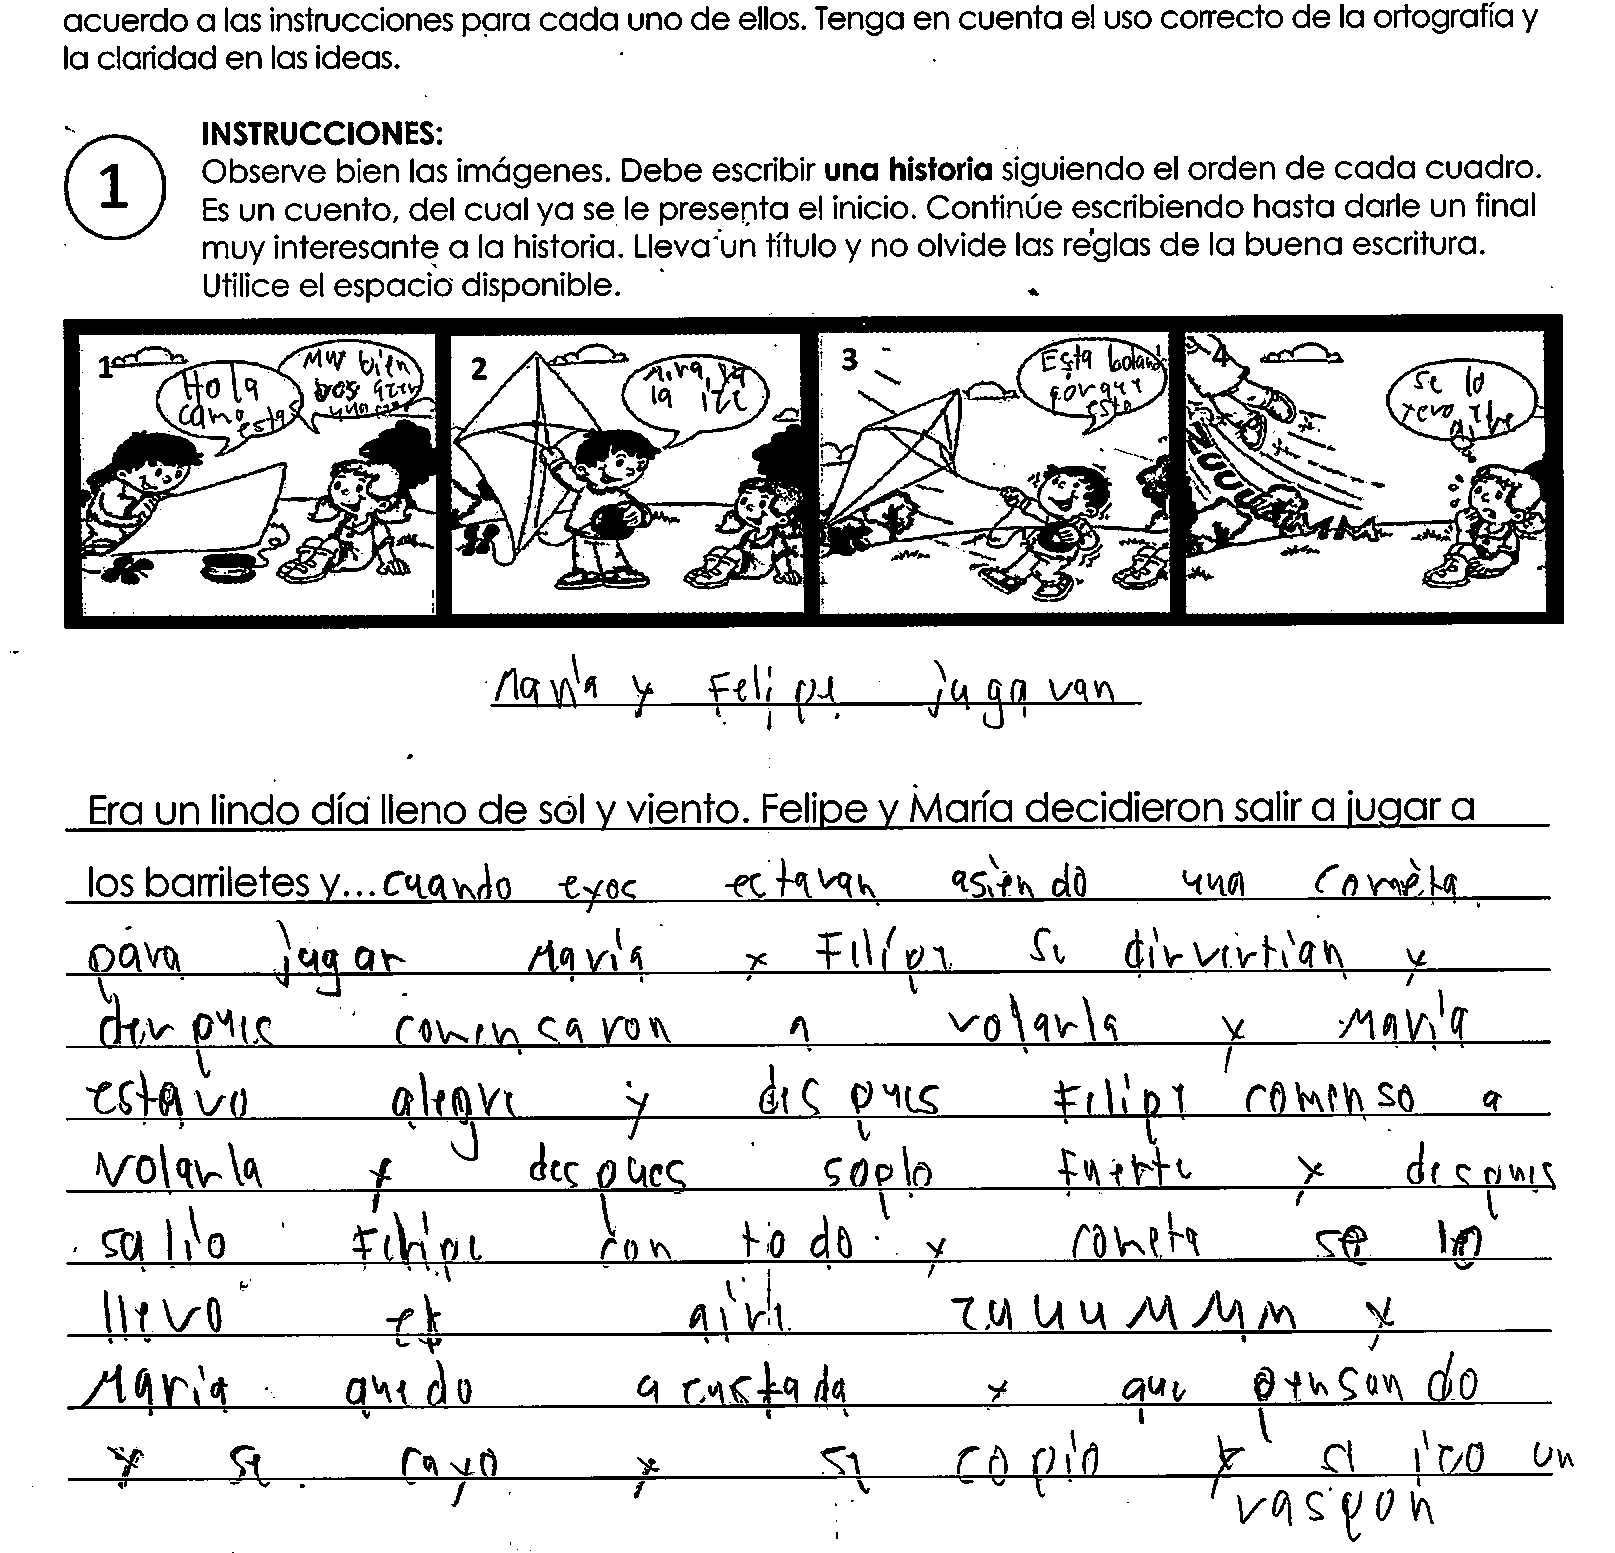 acuerdo a las instrucciones para cada uno de ellos. Tenga en cuenta el uso correcto de la ortografía y
la claridad en las ideas.
1
INSTRUCCIONES:
Observe bien las imágenes. Debe escribir una historia siguiendo el orden de cada cuadro.
Es un cuento, del cual ya se le presenta el inicio. Continúe escribiendo hasta darle un final
muy interesante a la historia. Lleva un título y no olvide las reglas de la buena escritura.
Utilice el espacio disponible.
1
Hola
camo
estas
Muy bien
2
Mira, ya
la ice
3
Esta bolando
porque
esto
4
Se lo
aire
ZUUUUMMM
María y Felipe jugavan
Era un lindo día lleno de sol y viento. Felipe y María decidieron salir a jugar a
los barriletes y... cuando eyos ectavan asiendo una cometa
para jugar María y Felipe se dirvirtian y
derpues comensaron a volarla y María
estavo alegre y despues Felipe comenso a
volarla y despues soplo fuerte y despues
salio Felipe con todo y cometa se lo
llevo el aire zuuuMMM y
María quedo acustada y que pensando
y se cayo y se copio y se ico un
raspon